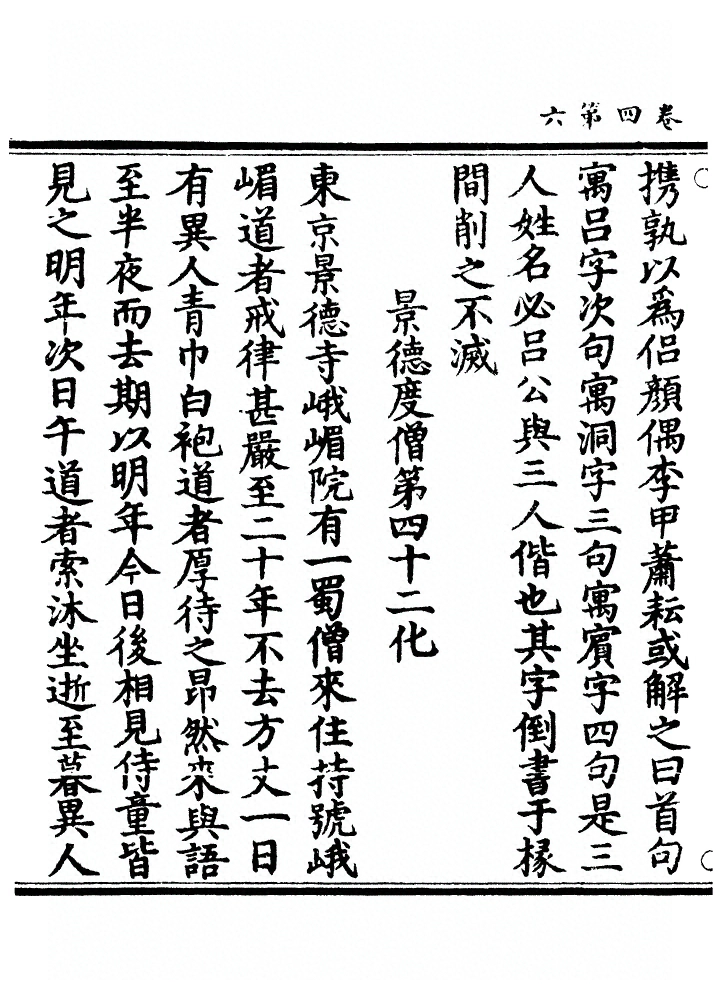 卷四第六
携孰以爲侣顔偶李甲蕭耘或解之曰首句
寓吕字次句寓洞字三句寓賓字四句是三
人姓名必吕公與三人偕也其字倒書于椽
間削之不滅
景德度僧第四十二化
東京景德寺峨嵋院有一蜀僧來住持號峨
嵋道者戒律甚嚴至二十年不去方丈一日
有異人青巾白袍道者厚待之昂然來與語
至半夜而去期以明年今日後相見侍童皆
見之明年次日午道者索沐坐逝至暮異人